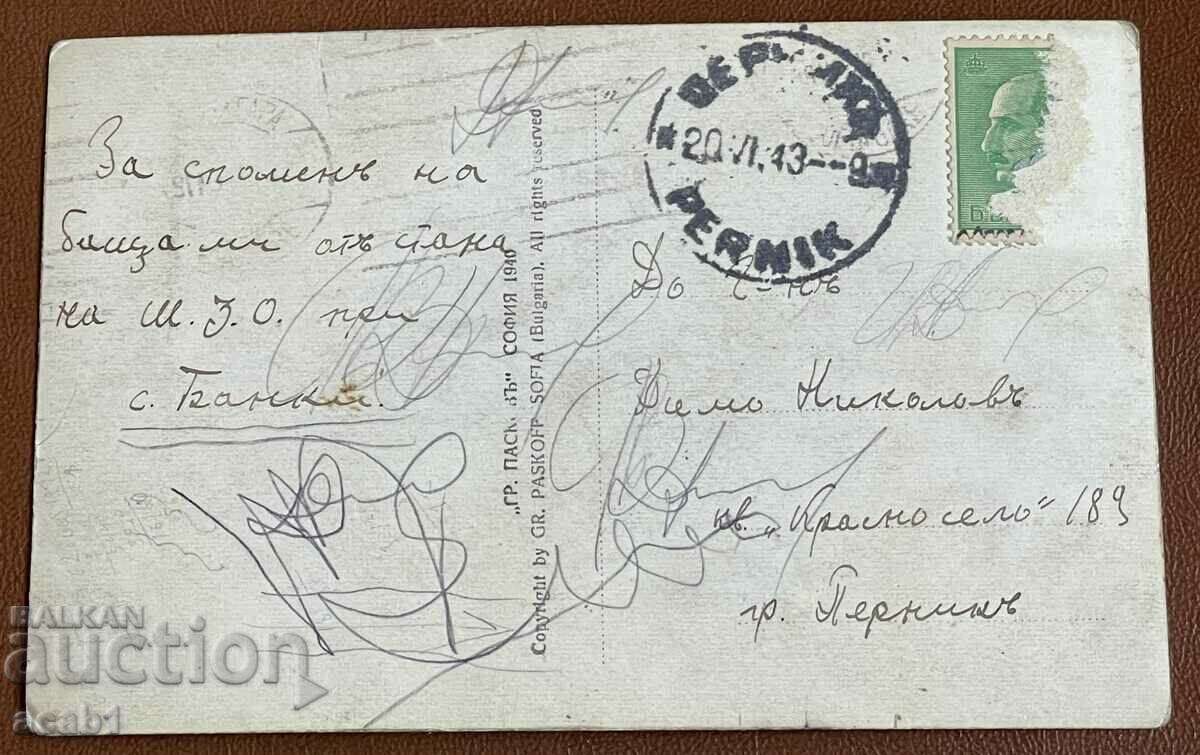 За споменъ на
баща ми отъ стана
на Ш.З.О. при
с. Банки.
"ГР. ПАСКОВЪ" СОФИЯ 1940
Copyright by GR. PASKOFF SOFIA (Bulgaria). All rights reserved
20.VI.43--9
PERNIK
До Г-нъ
Димо Николовъ
кв. „Красно село" 189
гр. Перникъ
BALKAN
auction
acab1